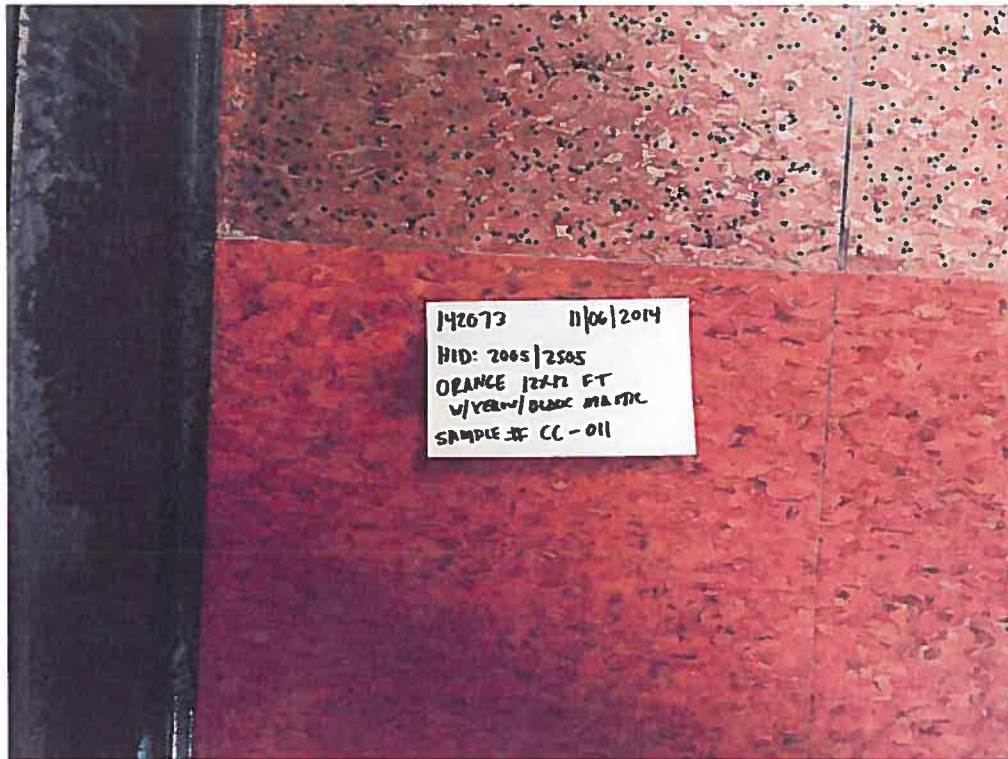 142073 11/06/2014
HID: 2005/2505
ORANGE 12x12 FT
W/YELLOW/BLACK MASTIC
SAMPLE # CC-011